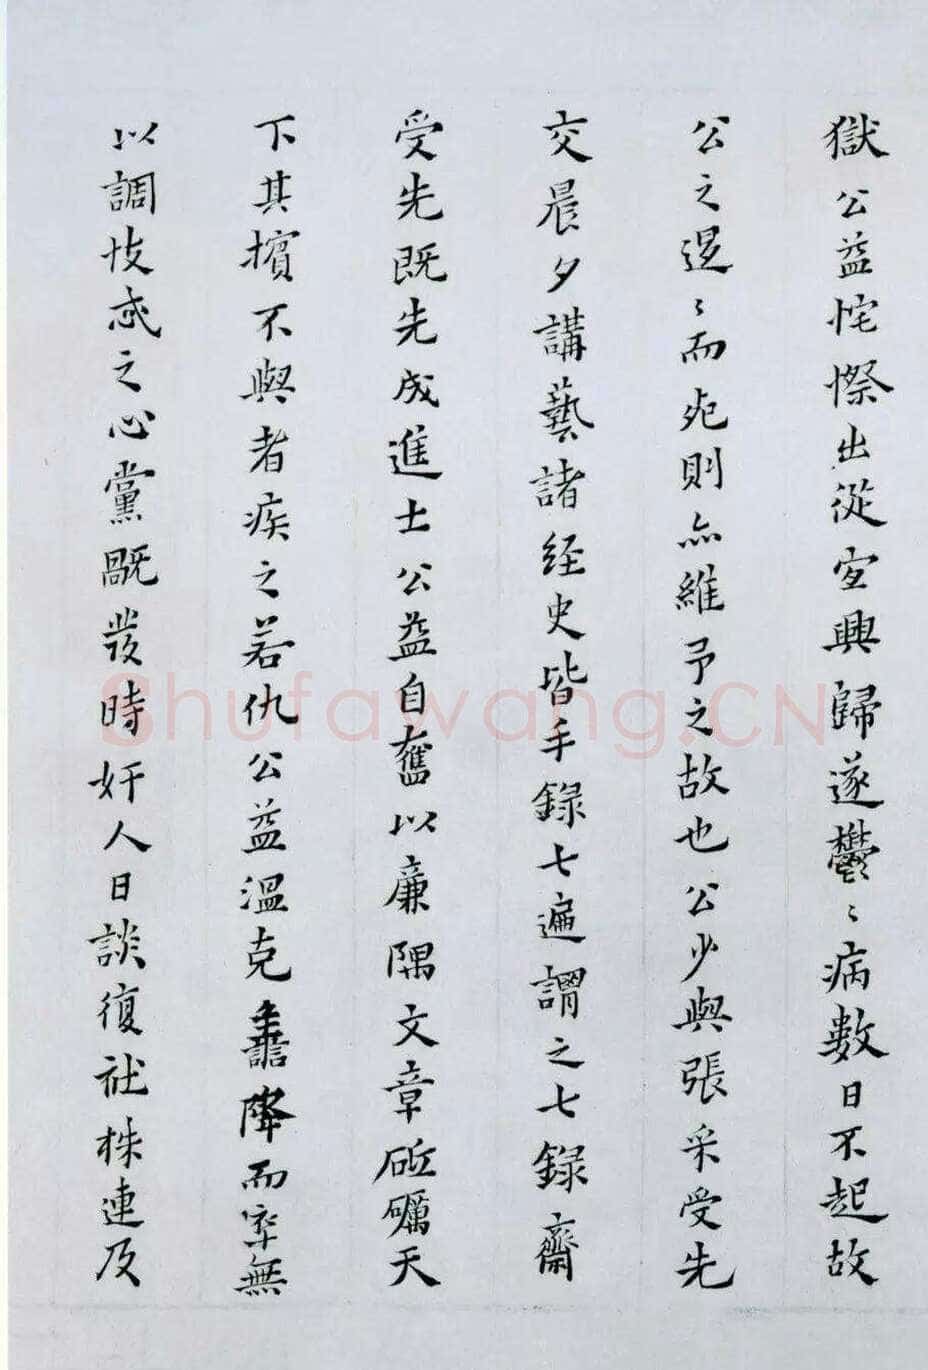 獄公益侘傺出從宜興歸遂鬱〻病數日不起故
公之遑〻而死則亦維予之故也公少與張采受先
交晨夕講藝諸經史皆手錄七遍謂之七錄齋
受先既先成進士公益自奮以廉隅文章砥礪天
下其擯不與者疾之若仇公益溫克譱降而率無
以調忮忒之心黨既發時奸人日談復社株連及
Shufawang.CN